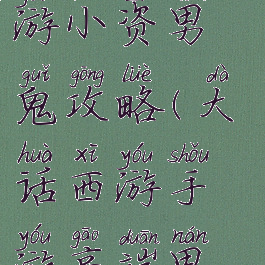 游小资男
guǐ gōng lüè dà
鬼攻略(大
huà xī yóu shǒu
话西游手
yóu gāo duān nán
游高端男